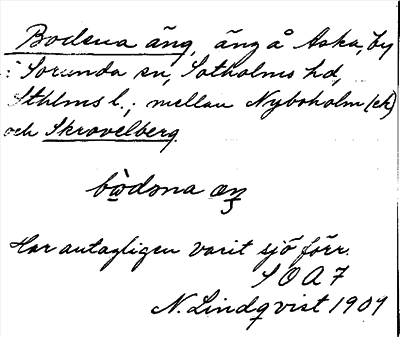 Bodsna äng, äng å Aska, by
i Sorunda sn, Sotholms hd,
Sthlms l.; mellan Nyboholm (ek)
och Skravelberg.
bòdsna æŋ
Har antagligen varit sjö förr.
S O A 7
N. Lindqvist 1909